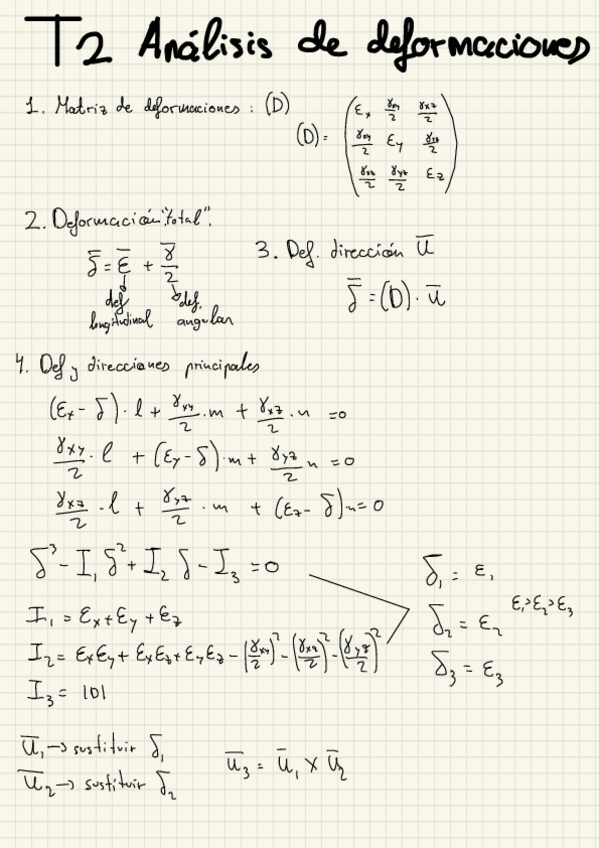 T2 Análisis de deformaciones
1. Matriz de deformaciones : (D)
(D) = ( εx γxy/2 γxz/2
γxy/2 εy γyz/2
γxz/2 γyz/2 εz )
2. Deformación "total".
δ̅ = ε̅ + γ̅/2
def longitudinal
def. angular
3. Def. dirección u̅
δ̅ = (D) · u̅
4. Def y direcciones principales
(εx - δ) · l + γxy/2 · m + γxz/2 · n = 0
γxy/2 · l + (εy - δ) · m + γyz/2 n = 0
γxz/2 · l + γyz/2 · m + (εz - δ) · n = 0
δ³ - I₁ δ² + I₂ δ - I₃ = 0
I₁ = εx + εy + εz
I₂ = εxεy + εxεz + εyεz - (γxy/2)² - (γxz/2)² - (γyz/2)²
I₃ = |D|
δ₁ = ε₁
δ₂ = ε₂
ε₁>ε₂>ε₃
δ₃ = ε₃
u̅₁ → sustituir δ₁
u̅₂ → sustituir δ₂
u̅₃ = u̅₁ × u̅₂